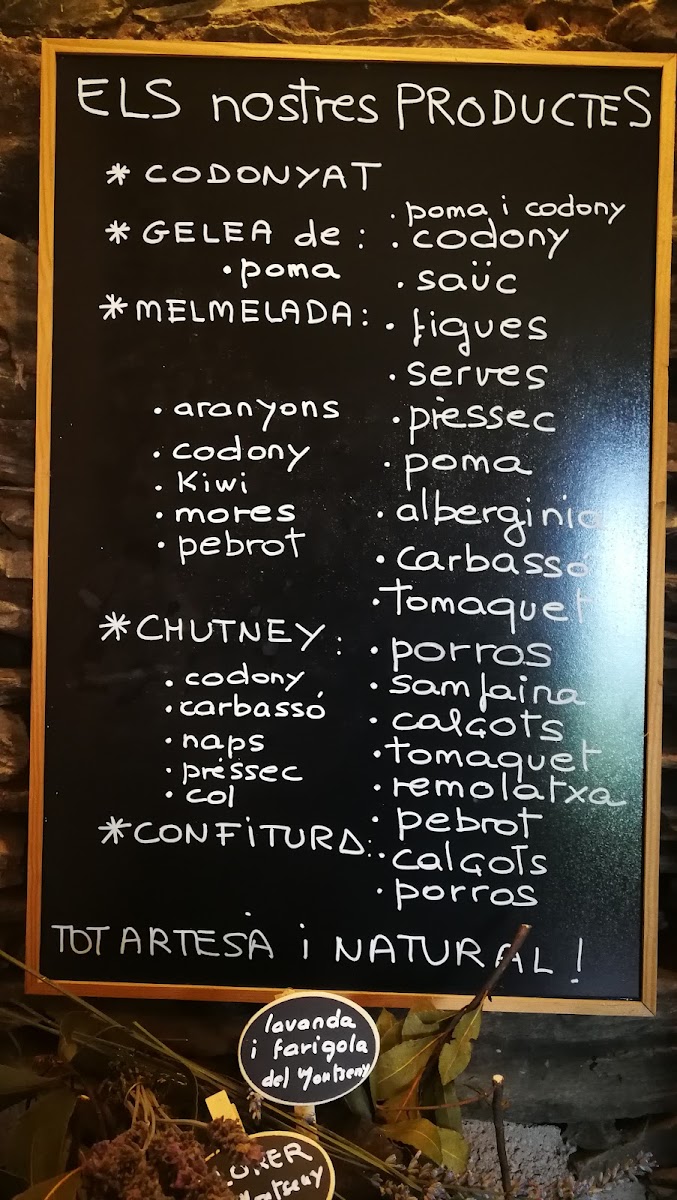 ELS nostres PRODUCTES
* CODONYAT
* GELEA de: · poma i codony
· codony
· poma
· saüc
* MELMELADA: · figues
· serves
· aranyons
· pièssec
· codony
· poma
· Kiwi
· mores
· albergínia
· pebrot
· carbassó
· tomaquet
* CHUTNEY: · porros
· codony
· samfaina
· carbassó
· calçots
· naps
· tomaquet
· préssec
· remolatxa
· col
· pebrot
* CONFITURA: · calçots
· porros
TOT ARTESÀ i NATURAL!
lavanda
i farigola
del Montseny
Montseny